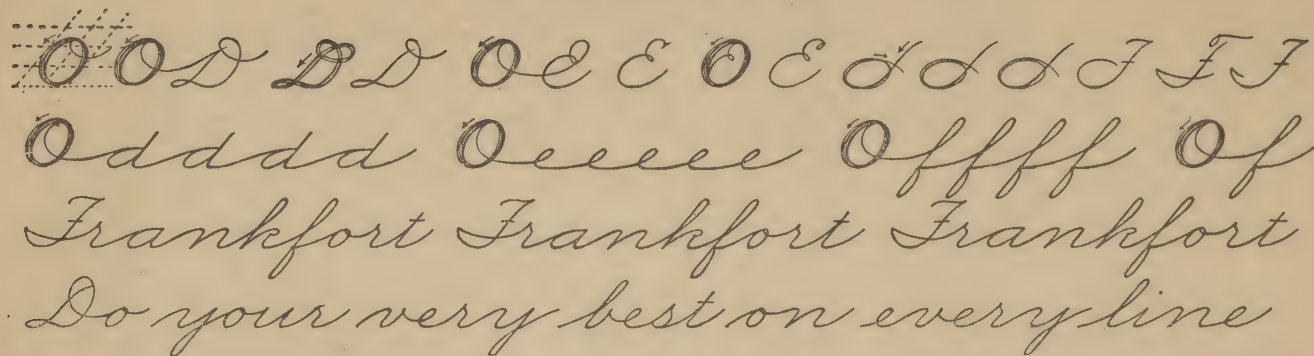 O O D D D O E E O E J J J F F F
O d d d d d O e e e e e O f f f f O f
Frankfort Frankfort Frankfort
Do your very best on every line